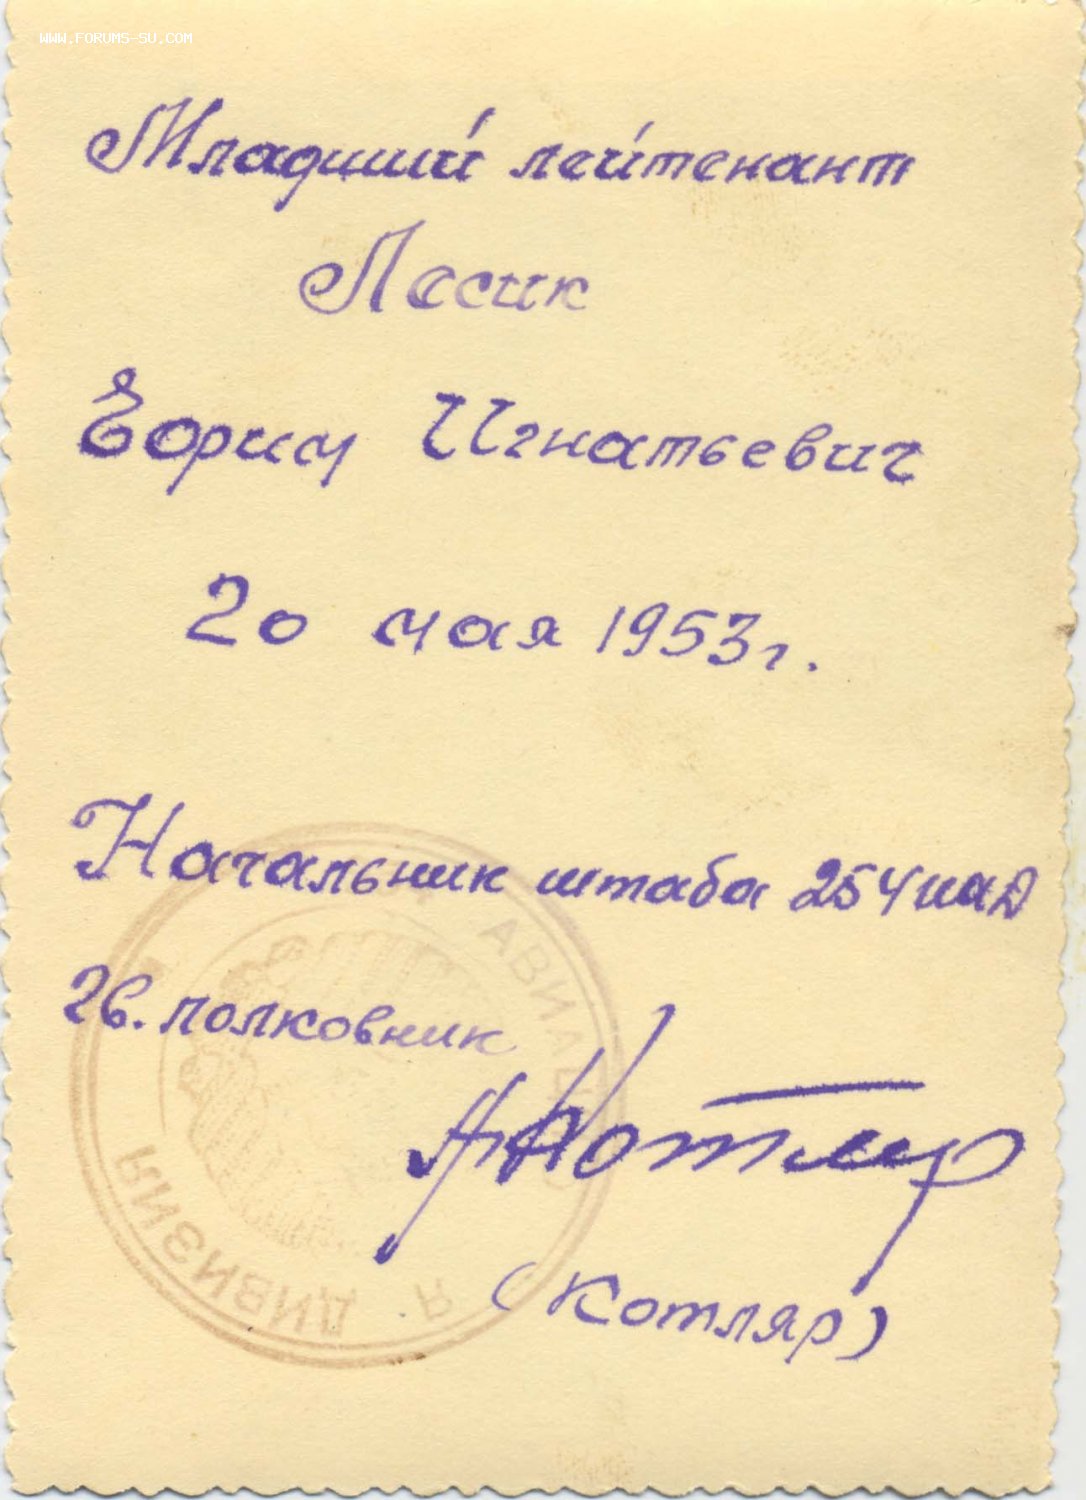 WWW.FORUMS-SU.COM
Младший лейтенант
Лесик
Ефрим Игнатьевич
20 мая 1953г.
Начальник штаба 254 иад
Гв. полковник
АКотляр
(Котляр)
АВИАЦ
ДИВИЗИЯ
Я